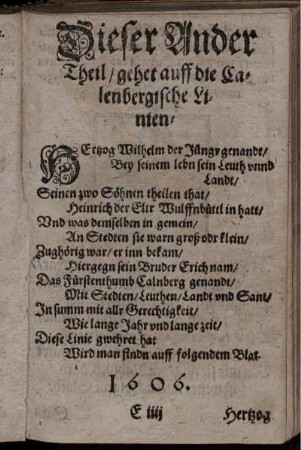 Dieser Ander
Theil / gehet auff die Ca-
lenbergische Li-
nien /
HErtzog Wilhelm der Jüngr genandt /
Bey seinem lebn sein Leuth vnnd
Landt /
Seinen zwo Söhnen theilen that /
Heinrich der Eltr Wulffnbüttl in hatt /
Vnd was demselben in gemein /
An Stedten sie warn groß odr klein /
Zughörig war / er inn bekam /
Hiergegn sein Bruder Erich nam /
Das Fürstenthumb Calnberg genandt /
Mit Stedten / Leuthen / Landt vnd Sant /
In summ mit allr Gerechtigkeit /
Wie lange Jahr vnd lange zeit /
Diese Linie gwehret hat
Wird man findn auff folgendem Blat.
1606.
E iiij
Hertzog